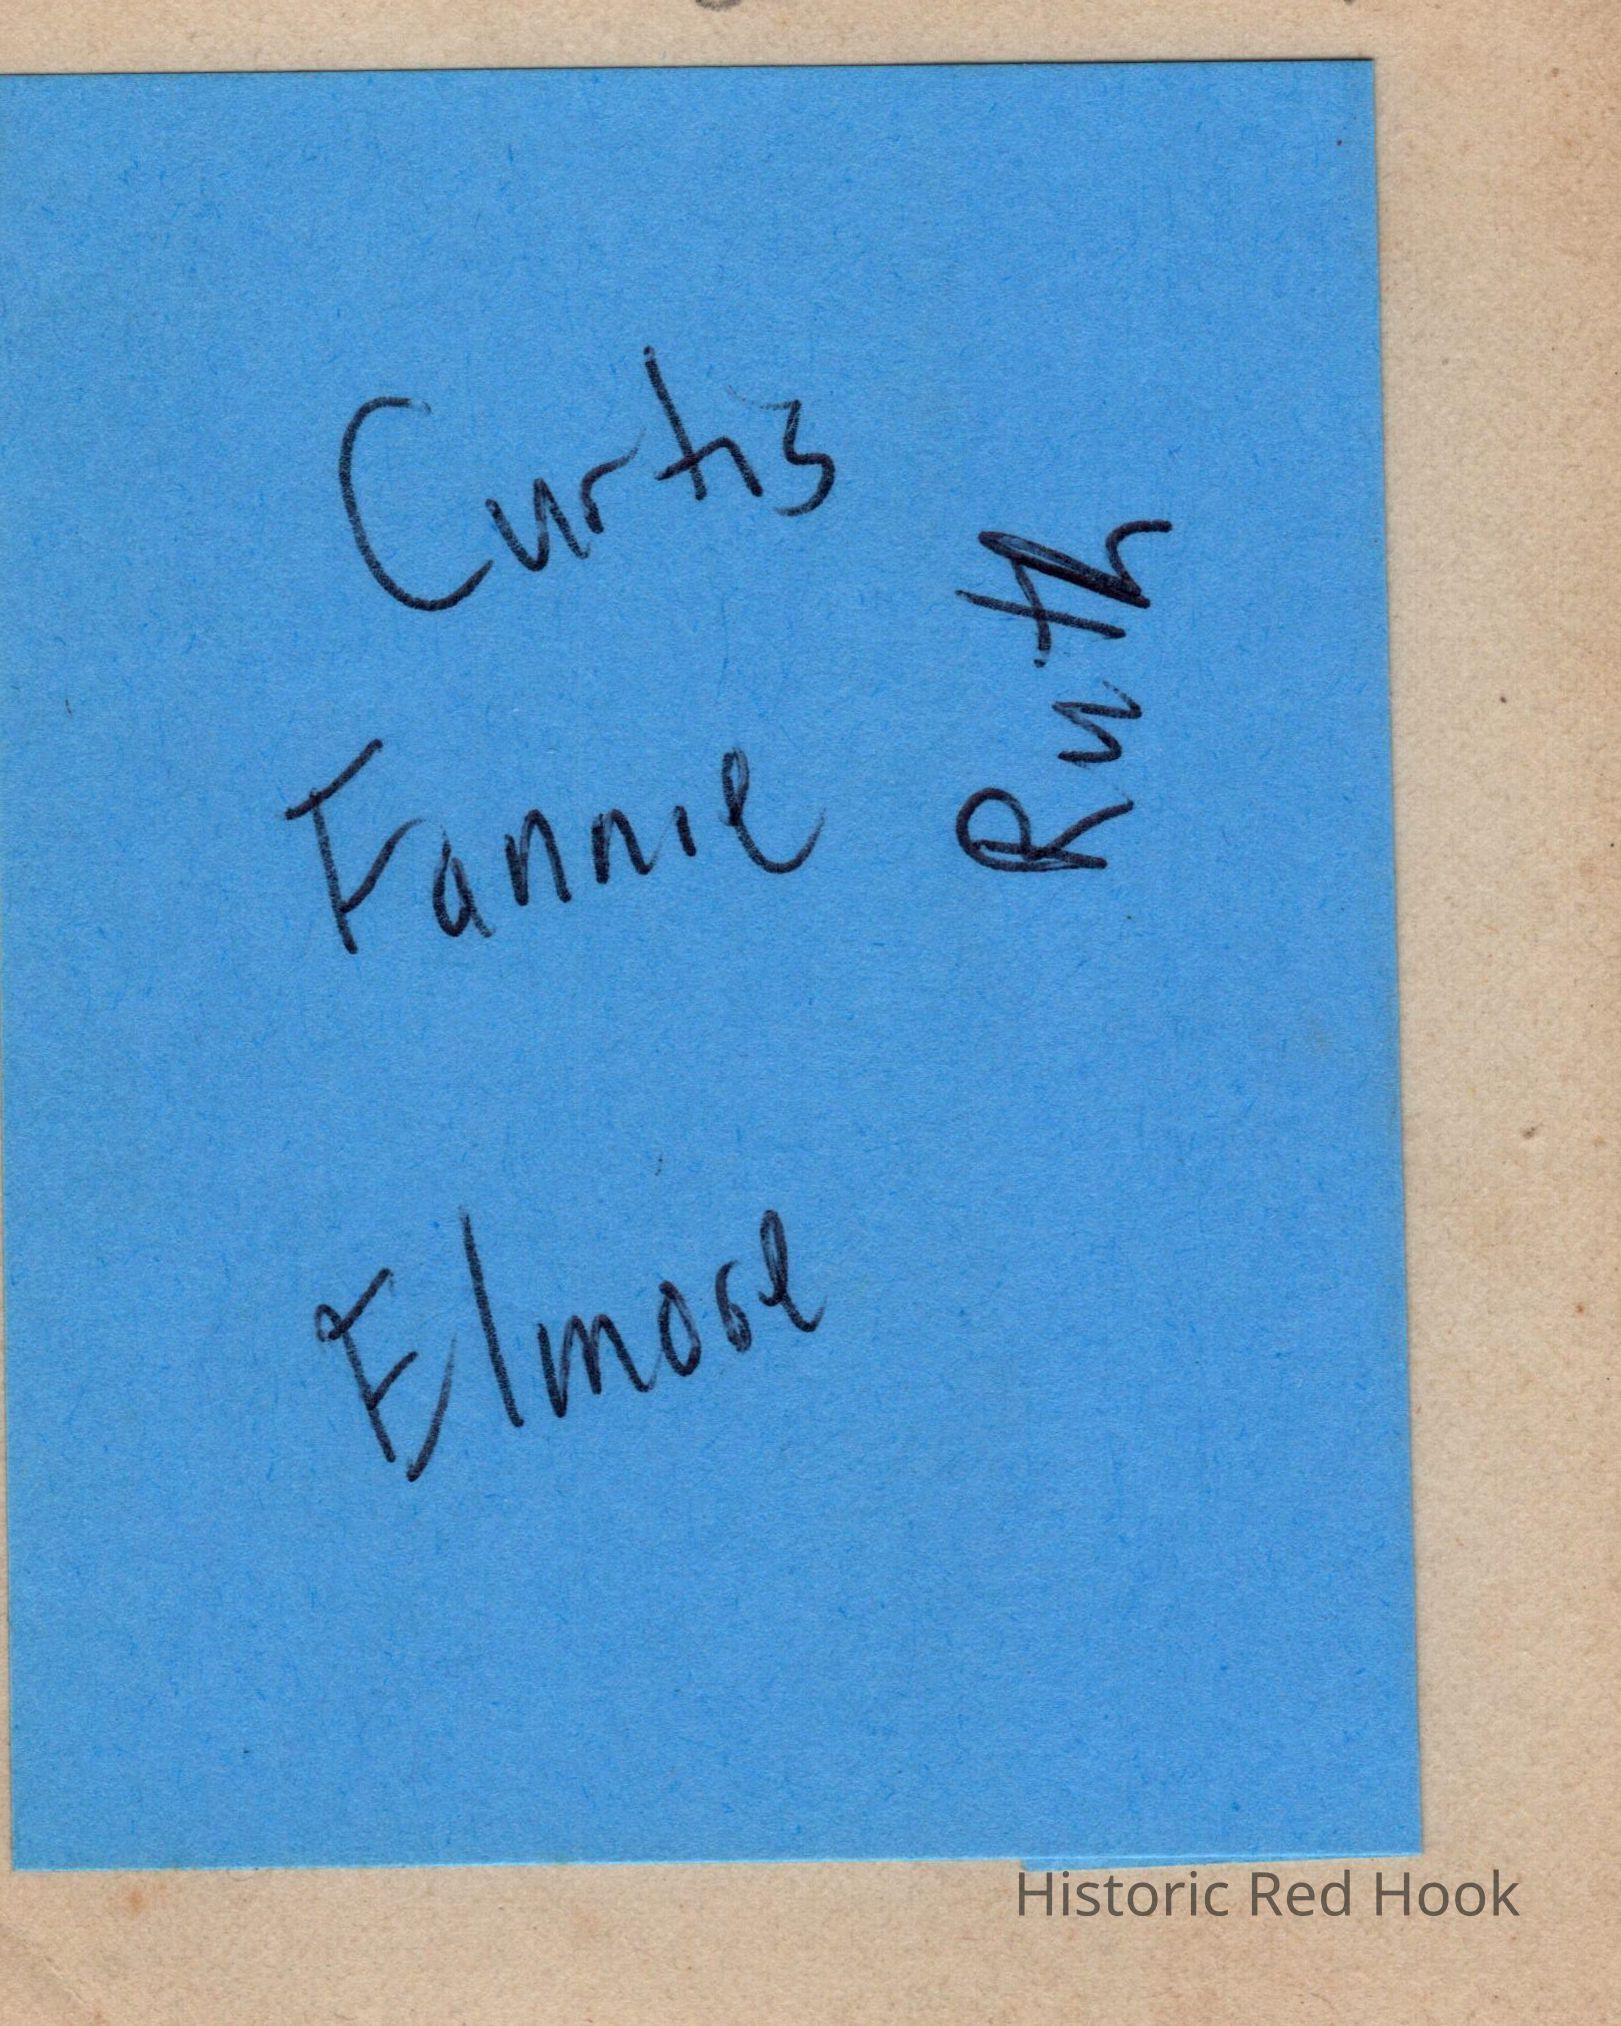 Curtis
Ruth
Fannie
Elmore
Historic Red Hook